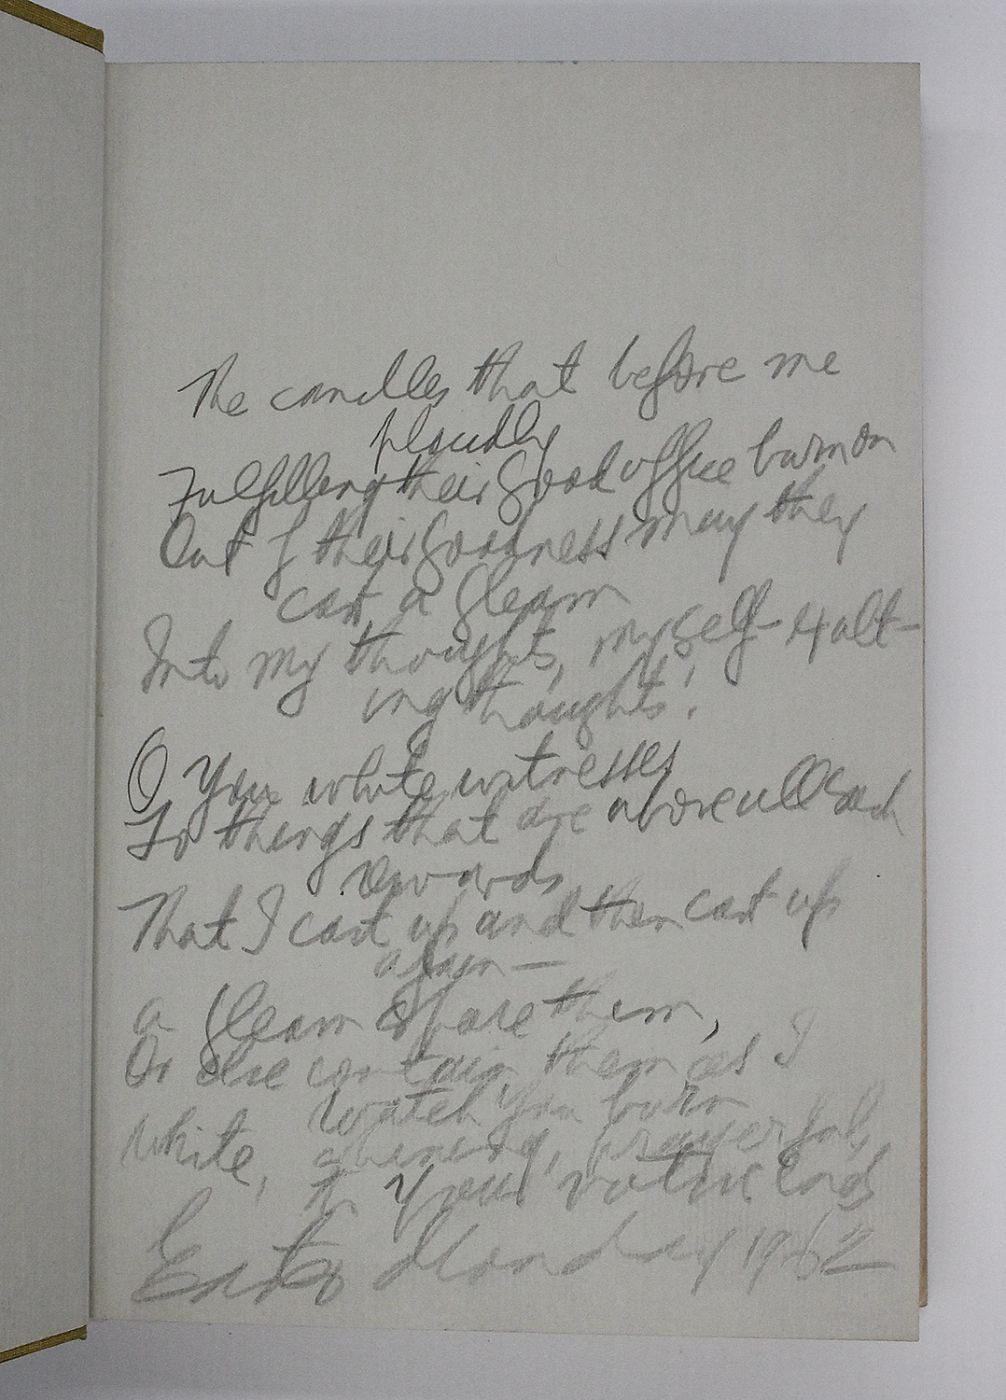 The candles that before me
placidly
Fulfilling their good office burn on
Out of their goodness may they
cast a gleam
Into my thoughts, my self-exalt-
ing thoughts!
O you white witnesses
To things that are above all such
rewards
That I cast up and then cast up
again—
a gleam share them,
Or else contain them as I
watch you burn
White, shining, prayerful,
to your votive ends
Easter Monday 1962